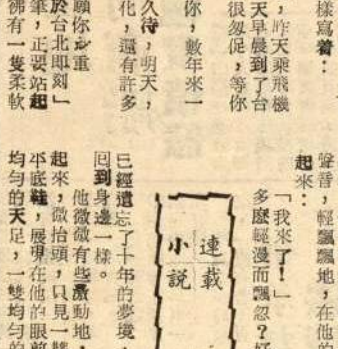 樣寫着：
，昨天乘飛機
天早晨到了台
很匆促，等你
你，數年來一
久待，明天，
化，還有許多
願你珍重
於台北即刻」
筆，正要站起
彿有一隻柔軟
聲音，輕飄飄地，在他的
起來：
「我來了！」
多麽輕漫而飄忽？好
連載
小說
已經遺忘了十年的夢境，
回到身邊一樣。
他微微有些激動地，
起來，微抬頭，只見一雙
平底鞋，展現在他的眼前
均勻的天足，一雙均勻的